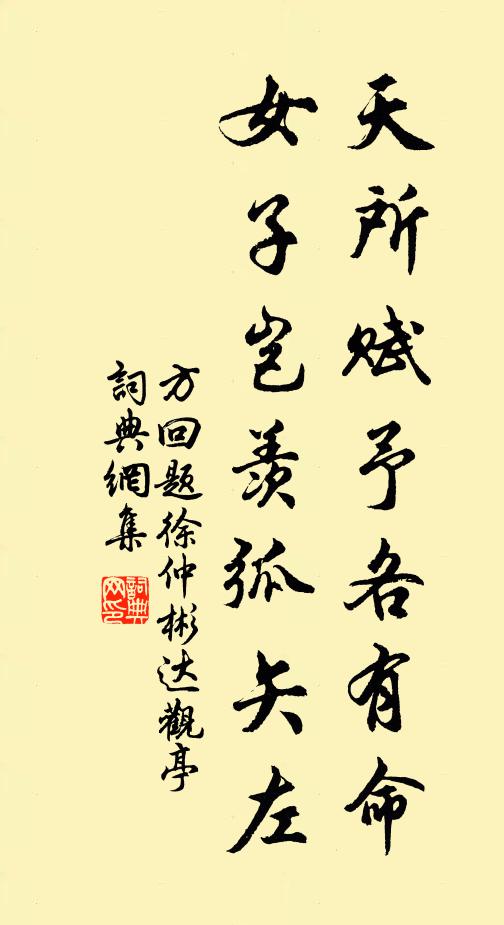 天所赋予各有命
女子岂羡弧矢左
方回题徐仲彬达觀亭
詞典網集
詞典网印